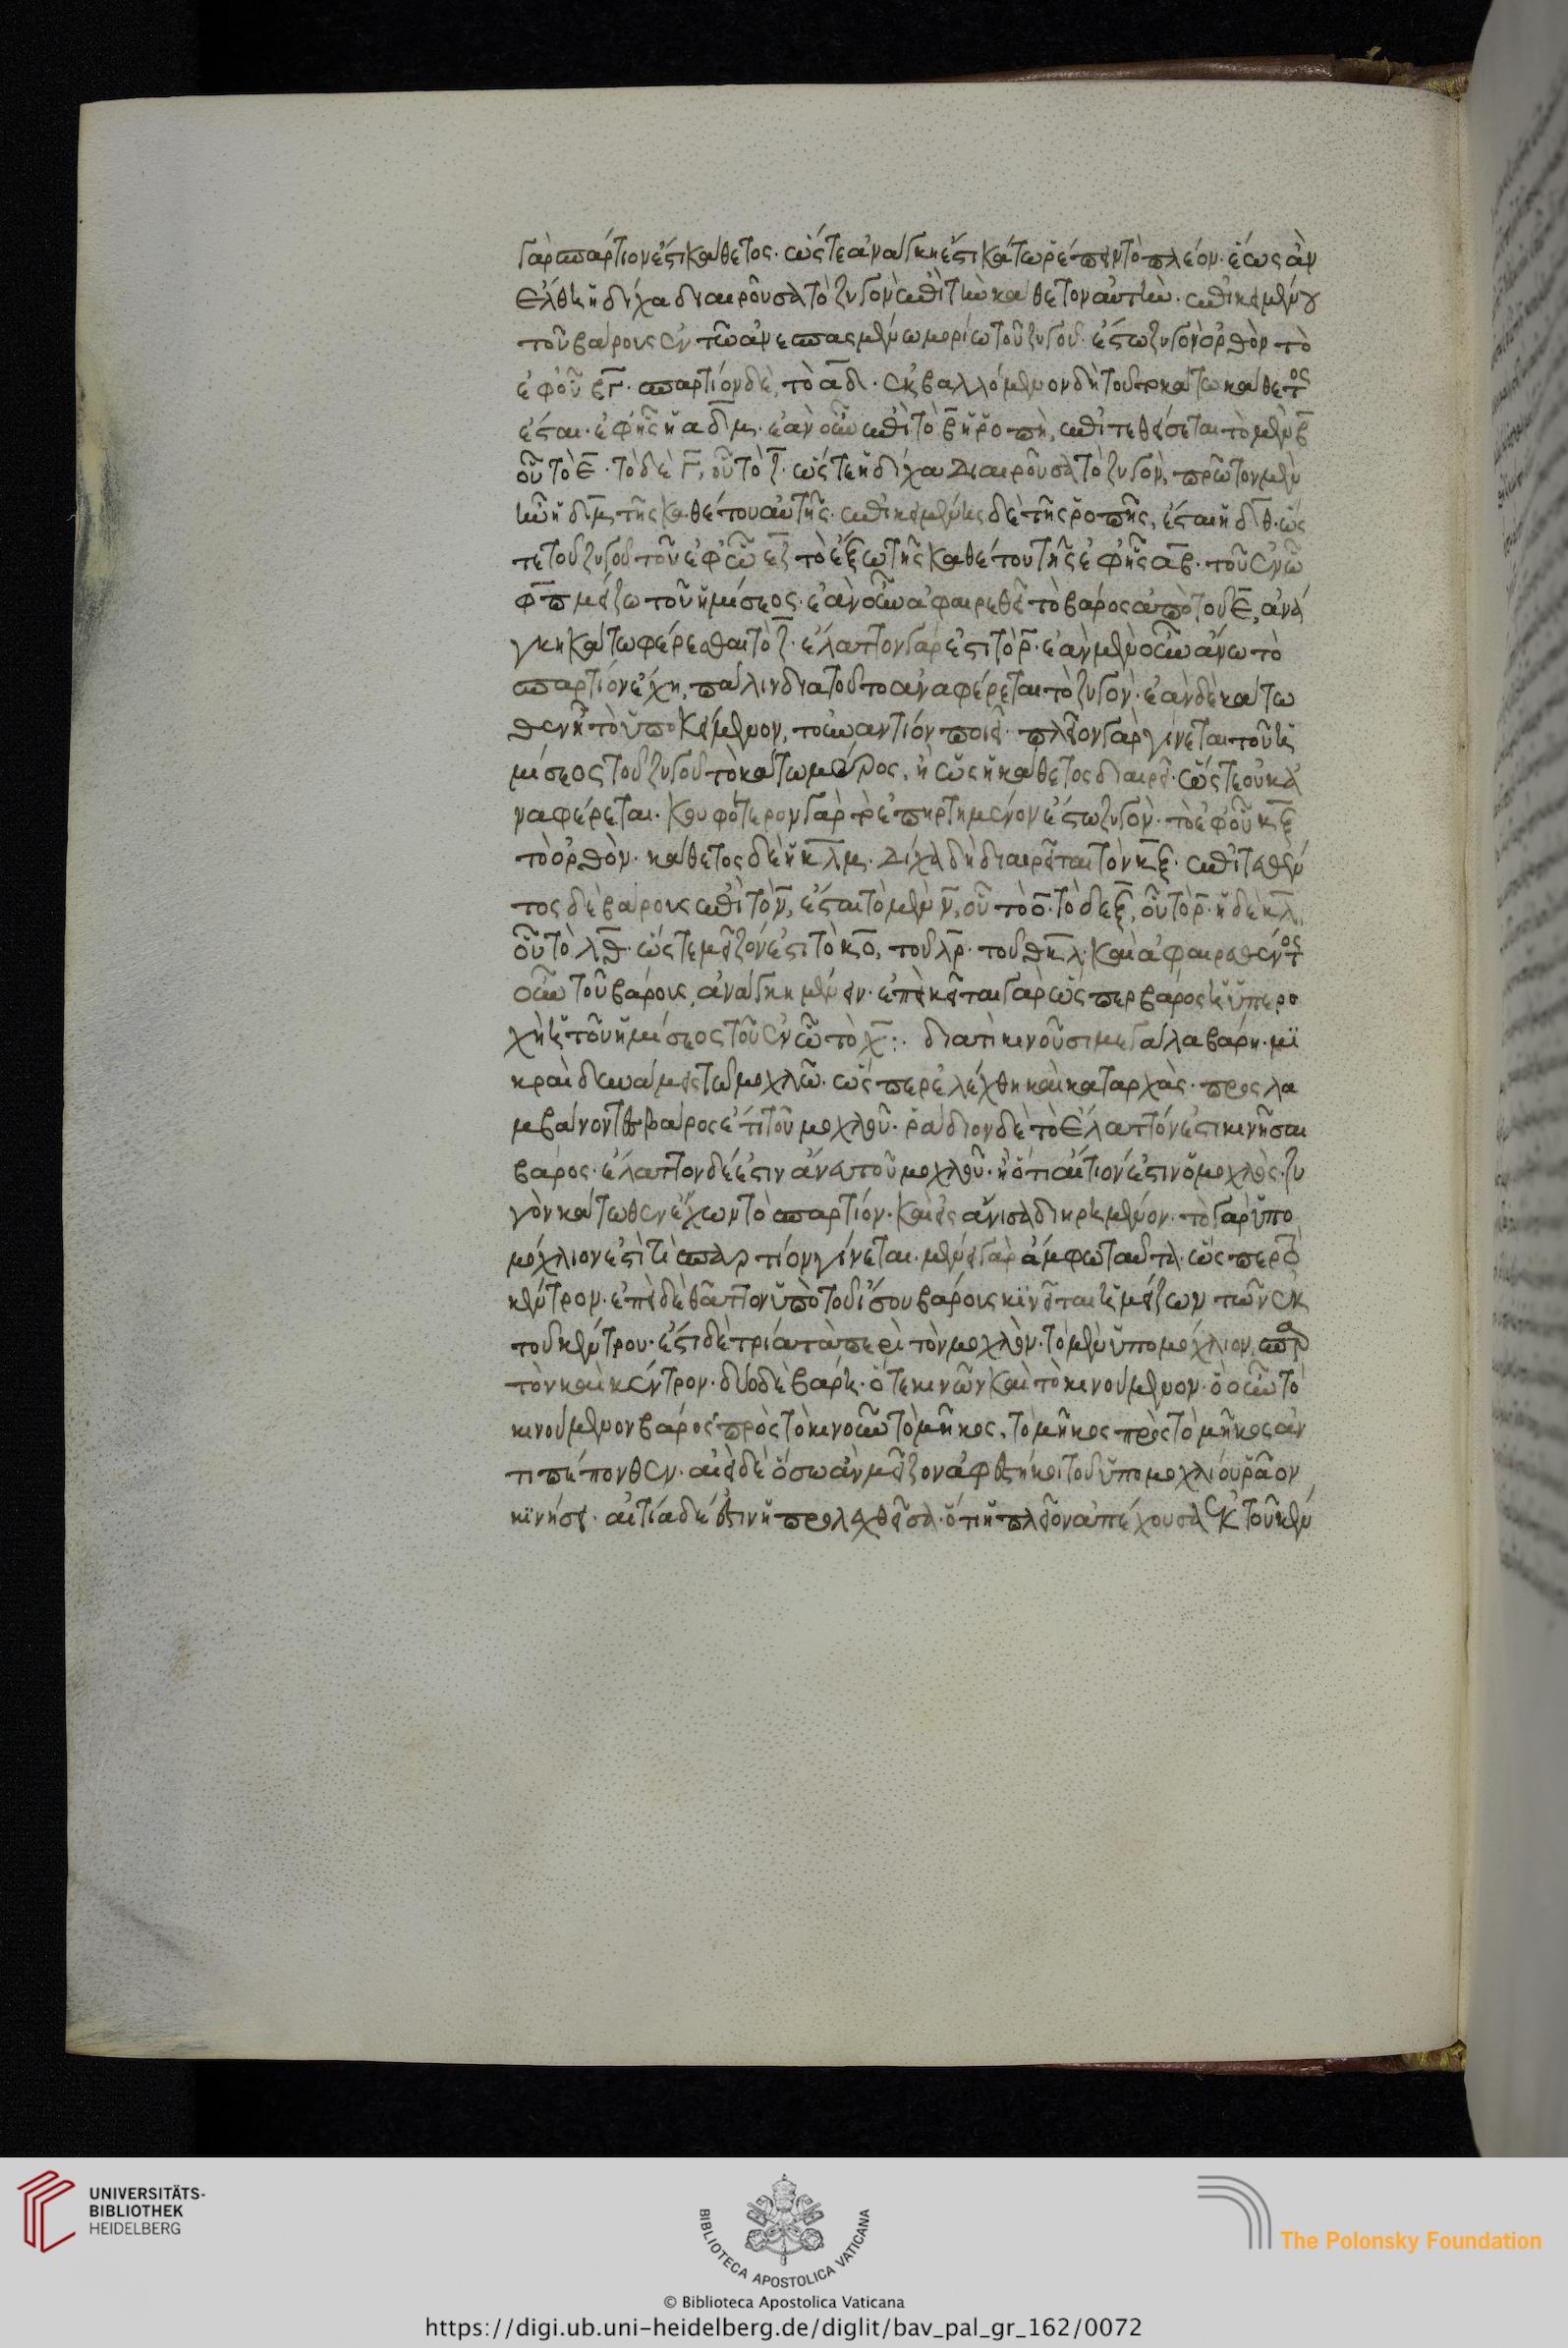 γὰρ σπάρτιόν ἐστι κάθετος· ὥστε ἀνάγκη ἐστὶ κάτω ῥέπειν τὸ πλέον· ἕως ἂν
ἔλθῃ ἡ δίχα διαιροῦσα τὸ ζυγὸν ἐπὶ τὴν κάθετον αὐτήν· ἐπικειμένου
τοῦ βάρους ἐν τῷ ἀνεσπασμένῳ μορίῳ τοῦ ζυγοῦ· ἔστω ζυγὸν ὀρθὸν τὸ
ἐφ' οὗ β̅γ̅· σπαρτίον δὲ, τὸ α̅δ̅· ἐκβαλλόμενον δὴ τοῦτο κάτω κάθετος
ἔσται· ἐφ' ἧς ἡ α̅δ̅μ̅· ἐὰν οὖν ἐπὶ τὸ β̅ ἡ ῥοπὴ, ἐπιτεθήσεται τὸ μὲν β̅
οὗ τὸ ε̅· τὸ δὲ γ̅, οὗ τὸ ζ̅· ὥστε ἡ δίχα διαιροῦσα τὸ ζυγὸν, πρῶτον μὲν
ἦν ἡ δ̅μ̅ τῆς καθέτου αὐτῆς· ἐπικειμένης δὲ τῆς ῥοπῆς, ἔσται ἡ δ̅θ̅· ὥς
τε τοῦ ζυγοῦ τοῦ ἐφ' ᾧ ε̅ζ̅ τὸ ἔξω τῆς καθέτου τῆς ἐφ' ἧς α̅β̅· τοῦ ἐν ᾧ
φ̅π̅ μείζω τοῦ ἡμίσεος· ἐὰν οὖν ἀφαιρεθῇ τὸ βάρος ἀπὸ τοῦ ε̅, ἀνά
γκη κάτω φέρεσθαι τὸ ζ̅· ἔλαττον γάρ ἐστι τὸ ρ̅· ἐὰν μὲν οὖν ἄνω τὸ
σπαρτίον ἔχῃ, πάλιν διὰ τοῦτο ἀναφέρεται τὸ ζυγόν· ἐὰν δὲ κάτω
θεν ᾖ τὸ ὑποκείμενον, τοὐναντίον ποιεῖ· πλεῖον γὰρ γίνεται τοῦ ἡ
μίσεος τοῦ ζυγοῦ τὸ κάτω μέρος, ἢ ὡς ἡ κάθετος διαιρεῖ· ὥστε οὐκ ἀ
ναφέρεται· κουφότερον γὰρ τὸ ἐπηρτημένον ἔστω ζυγὸν· τὸ ἐφ' οὗ ν̅ξ̅
τὸ ὀρθὸν· κάθετος δὲ ἡ κ̅λ̅μ̅· δίχα δὴ διαιρεῖται τὸ ν̅ξ̅· ἐπιτεθέν
τος δὲ βάρους ἐπὶ τὸ ν̅, ἔσται τὸ μὲν ν̅, οὗ τὸ ο̅· τὸ δὲ ξ̅, οὗ τὸ ρ̅· ἡ δὲ κ̅λ̅,
οὗ τὸ λ̅θ̅· ὥστε μεῖζόν ἐστι τὸ κ̅ο̅, τοῦ λ̅ρ̅· τοῦ θ̅κ̅λ̅· καὶ ἀφαιρεθέντος
οὖν τοῦ βάρους, ἀνάγκη μένειν· ἐπίκειται γὰρ ὥσπερ βάρος ἡ ὑπερο
χὴ ἡ τοῦ ἡμίσεος τοῦ ἐν ᾧ τὸ χ̅:· διατὶ κινοῦσι μεγάλα βάρη· μι
κραὶ δυνάμεις τῷ μοχλῷ· ὥσπερ ἐλέχθη καὶ καταρχὰς· προσλα
μβάνοντι βάρος ἔτι τοῦ μοχλοῦ· ῥάδιον δὲ τὸ ἔλαττόν ἐστι κινῆσαι
βάρος· ἔλαττον δέ ἐστιν ἄνευ τοῦ μοχλοῦ· ἢ ὅτι αἴτιόν ἐστιν ὁ μοχλὸς· ζυ
γὸν κάτωθεν ἔχων τὸ σπαρτίον· καὶ εἰς ἄνισα διῃρημένον· τὸ γὰρ ὑπο
μόχλιον ἐστὶ τὸ σπαρτίον γίνεται· μένει γὰρ ἄμφω ταῦτα· ὥσπερ τὸ
κέντρον· ἐπεὶ δὲ θᾶττον ὑπὸ τοῦ ἴσου βάρους κινεῖται ἡ μείζων τῶν ἐκ
τοῦ κέντρου· ἔστι δὲ τρία τὰ περὶ τὸν μοχλὸν· τὸ μὲν ὑπομόχλιον, σπάρ
τον καὶ κέντρον· δύο δὲ βάρη· ὅ τε κινῶν καὶ τὸ κινούμενον· ὃ οὖν τὸ
κινούμενον βάρος πρὸς τὸ κινοῦν τὸ μῆκος, τὸ μῆκος πρὸς τὸ μῆκος ἀν
τιπέπονθεν· αἰεὶ δὲ ὅσῳ ἂν μεῖζον ἀφεστήκει τοῦ ὑπομοχλίου ῥᾷον
κινήσει· αἰτία δέ ἐστιν ἡ προλεχθεῖσα· ὅτι ἡ πλεῖον ἀπέχουσα ἐκ τοῦ κέν
UNIVERSITÄTS-
BIBLIOTHEK
HEIDELBERG
BIBLIOTECA APOSTOLICA VATICANA
The Polonsky Foundation
© Biblioteca Apostolica Vaticana
https://digi.ub.uni-heidelberg.de/diglit/bav_pal_gr_162/0072